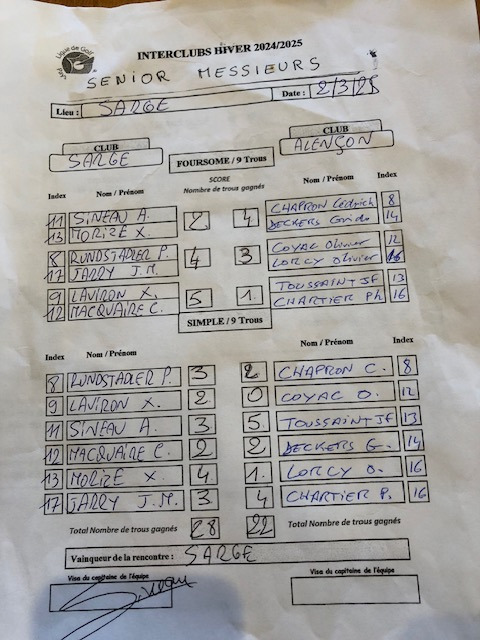 Ligue de Golf
INTERCLUBS HIVER 2024/2025
SENIOR MESSIEURS
Lieu : SARGE Date : 2/3/25
CLUB CLUB
SARGE ALENÇON
FOURSOME / 9 Trous
SCORE
Index Nom / Prénom Nombre de trous gagnés Nom / Prénom Index
11 SINEAU A. 2 4 CHAPRON Cédrick 8
13 MORIZE X. DECKERS Guido 14
8 RUNDSTADLER P. 4 3 COYAC Olivier 12
17 JARRY J.M. LORCY Olivier 16
9 LAVIRON X. 5 1. TOUSSAINT JF 13
12 MACQUAIRE C. CHARTIER Ph 16
SIMPLE / 9 Trous
Index Nom / Prénom Nom / Prénom Index
8 RUNDSTADLER P. 3 2 CHAPRON C. 8
9 LAVIRON X. 2 0 COYAC O. 12
11 SINEAU A. 3 5 TOUSSAINT JF 13
12 MACQUAIRE C. 2 2 DECKERS G. 14
13 MORIZE X. 4 1. LORCY O. 16
17 JARRY J.M. 3 4 CHARTIER P. 16
Total Nombre de trous gagnés 28 22 Total Nombre de trous gagnés
Vainqueur de la rencontre : SARGE
Visa du capitaine de l'équipe Visa du capitaine de l'équipe